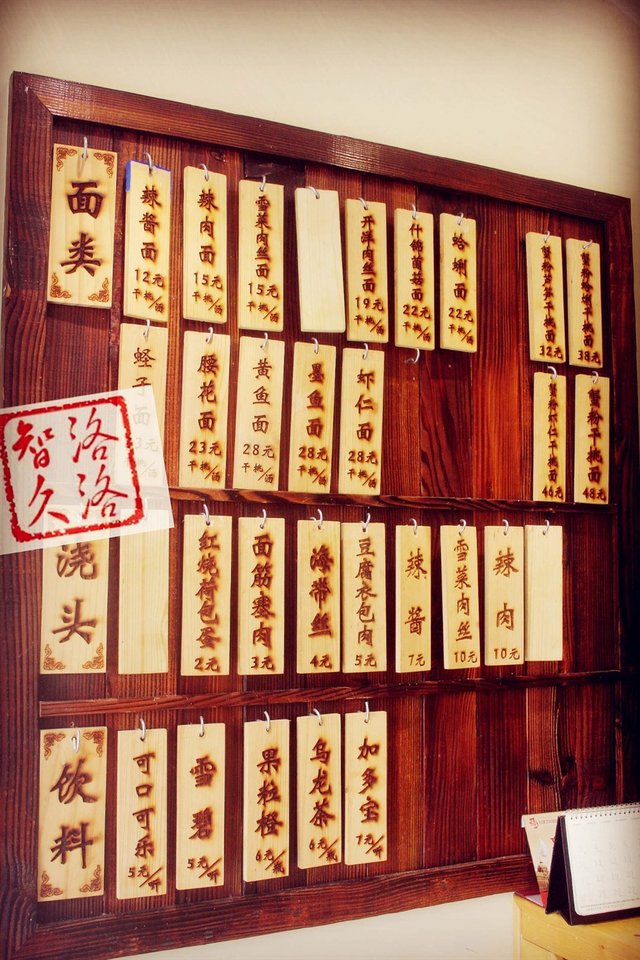 面类
辣酱面
12元
干挑/汤
辣肉面
15元
干挑/汤
雪菜肉丝面
15元
干挑/汤
开洋肉丝面
19元
干挑/汤
什锦菌菇面
22元
干挑/汤
蛤蜊面
22元
干挑/汤
蟹粉芦笋干挑面
32元
蟹粉蛤蜊干挑面
38元
蛏子面
腰花面
23元
干挑/汤
黄鱼面
28元
干挑/汤
墨鱼面
28元
干挑/汤
虾仁面
28元
干挑/汤
蟹粉虾仁干挑面
46元
蟹粉干挑面
48元
洛洛
智久
浇头
红烧荷包蛋
2元
面筋塞肉
3元
海带丝
4元
豆腐衣包肉
5元
辣酱
7元
雪菜肉丝
10元
辣肉
10元
饮料
可口可乐
5元/听
雪碧
5元/听
果粒橙
6元/瓶
乌龙茶
6元/瓶
加多宝
7元/听